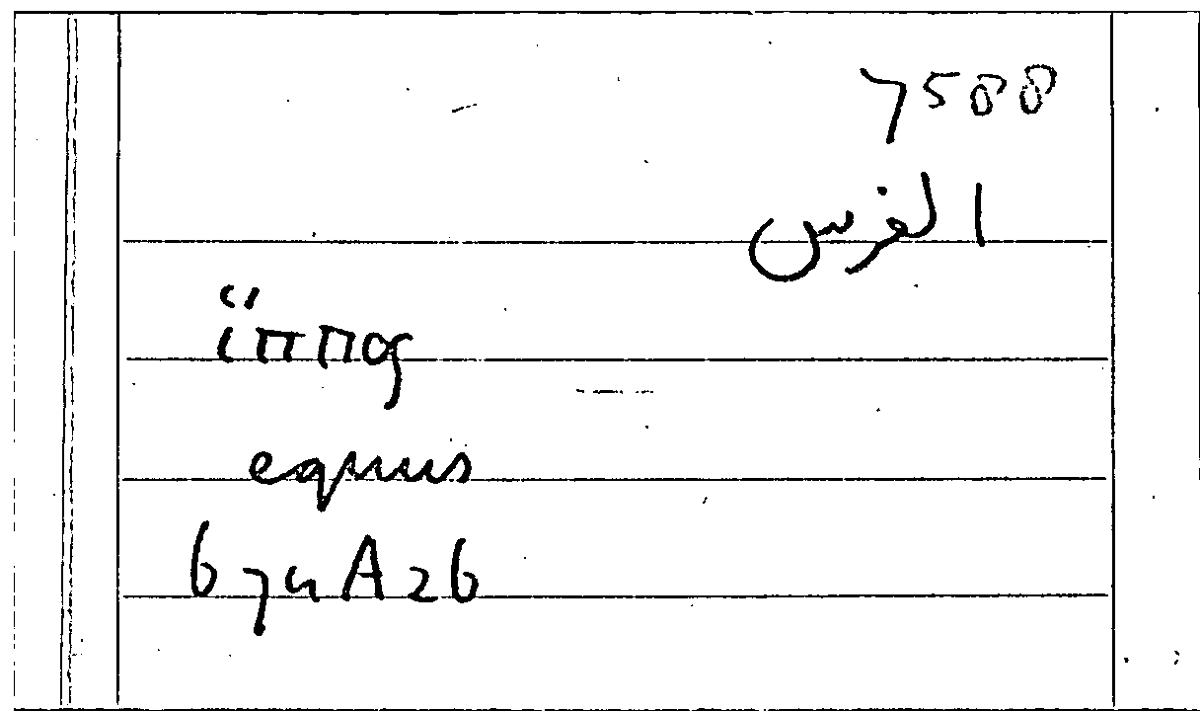 7588
الفرس
ἵππος
equus
67aA26